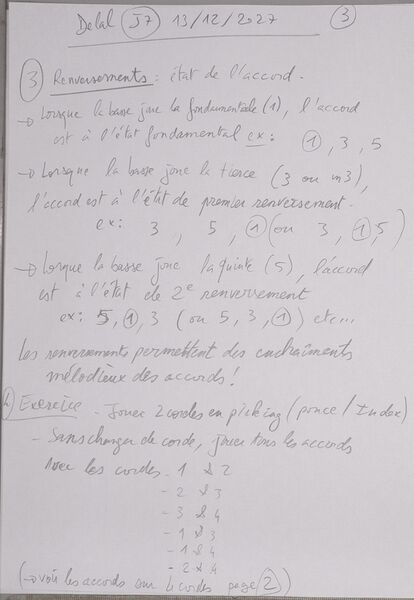 Delal J7 13/12/2027 3
3 Renversements : état de l'accord.
→ Lorsque la basse joue la fondamentale (1), l'accord
est à l'état fondamental ex : 1, 3, 5
→ Lorsque la basse joue la tierce (3 ou m3),
l'accord est à l'état de premier renversement.
ex : 3, 5, 1 (ou 3, 1, 5)
→ Lorsque la basse joue la quinte (5), l'accord
est à l'état de 2e renversement
ex : 5, 1, 3 (ou 5, 3, 1) etc...
Les renversements permettent des enchaîments
mélodieux des accords !
Exercice - Jouer 2 cordes en picking (pouce / Index)
- Sans changer de corde, jouer tous les accords
avec les cordes - 1 & 2
- 2 & 3
- 3 & 4
- 1 & 3
- 1 & 4
- 2 & 4
(→ voir les accords sur 4 cordes page 2)